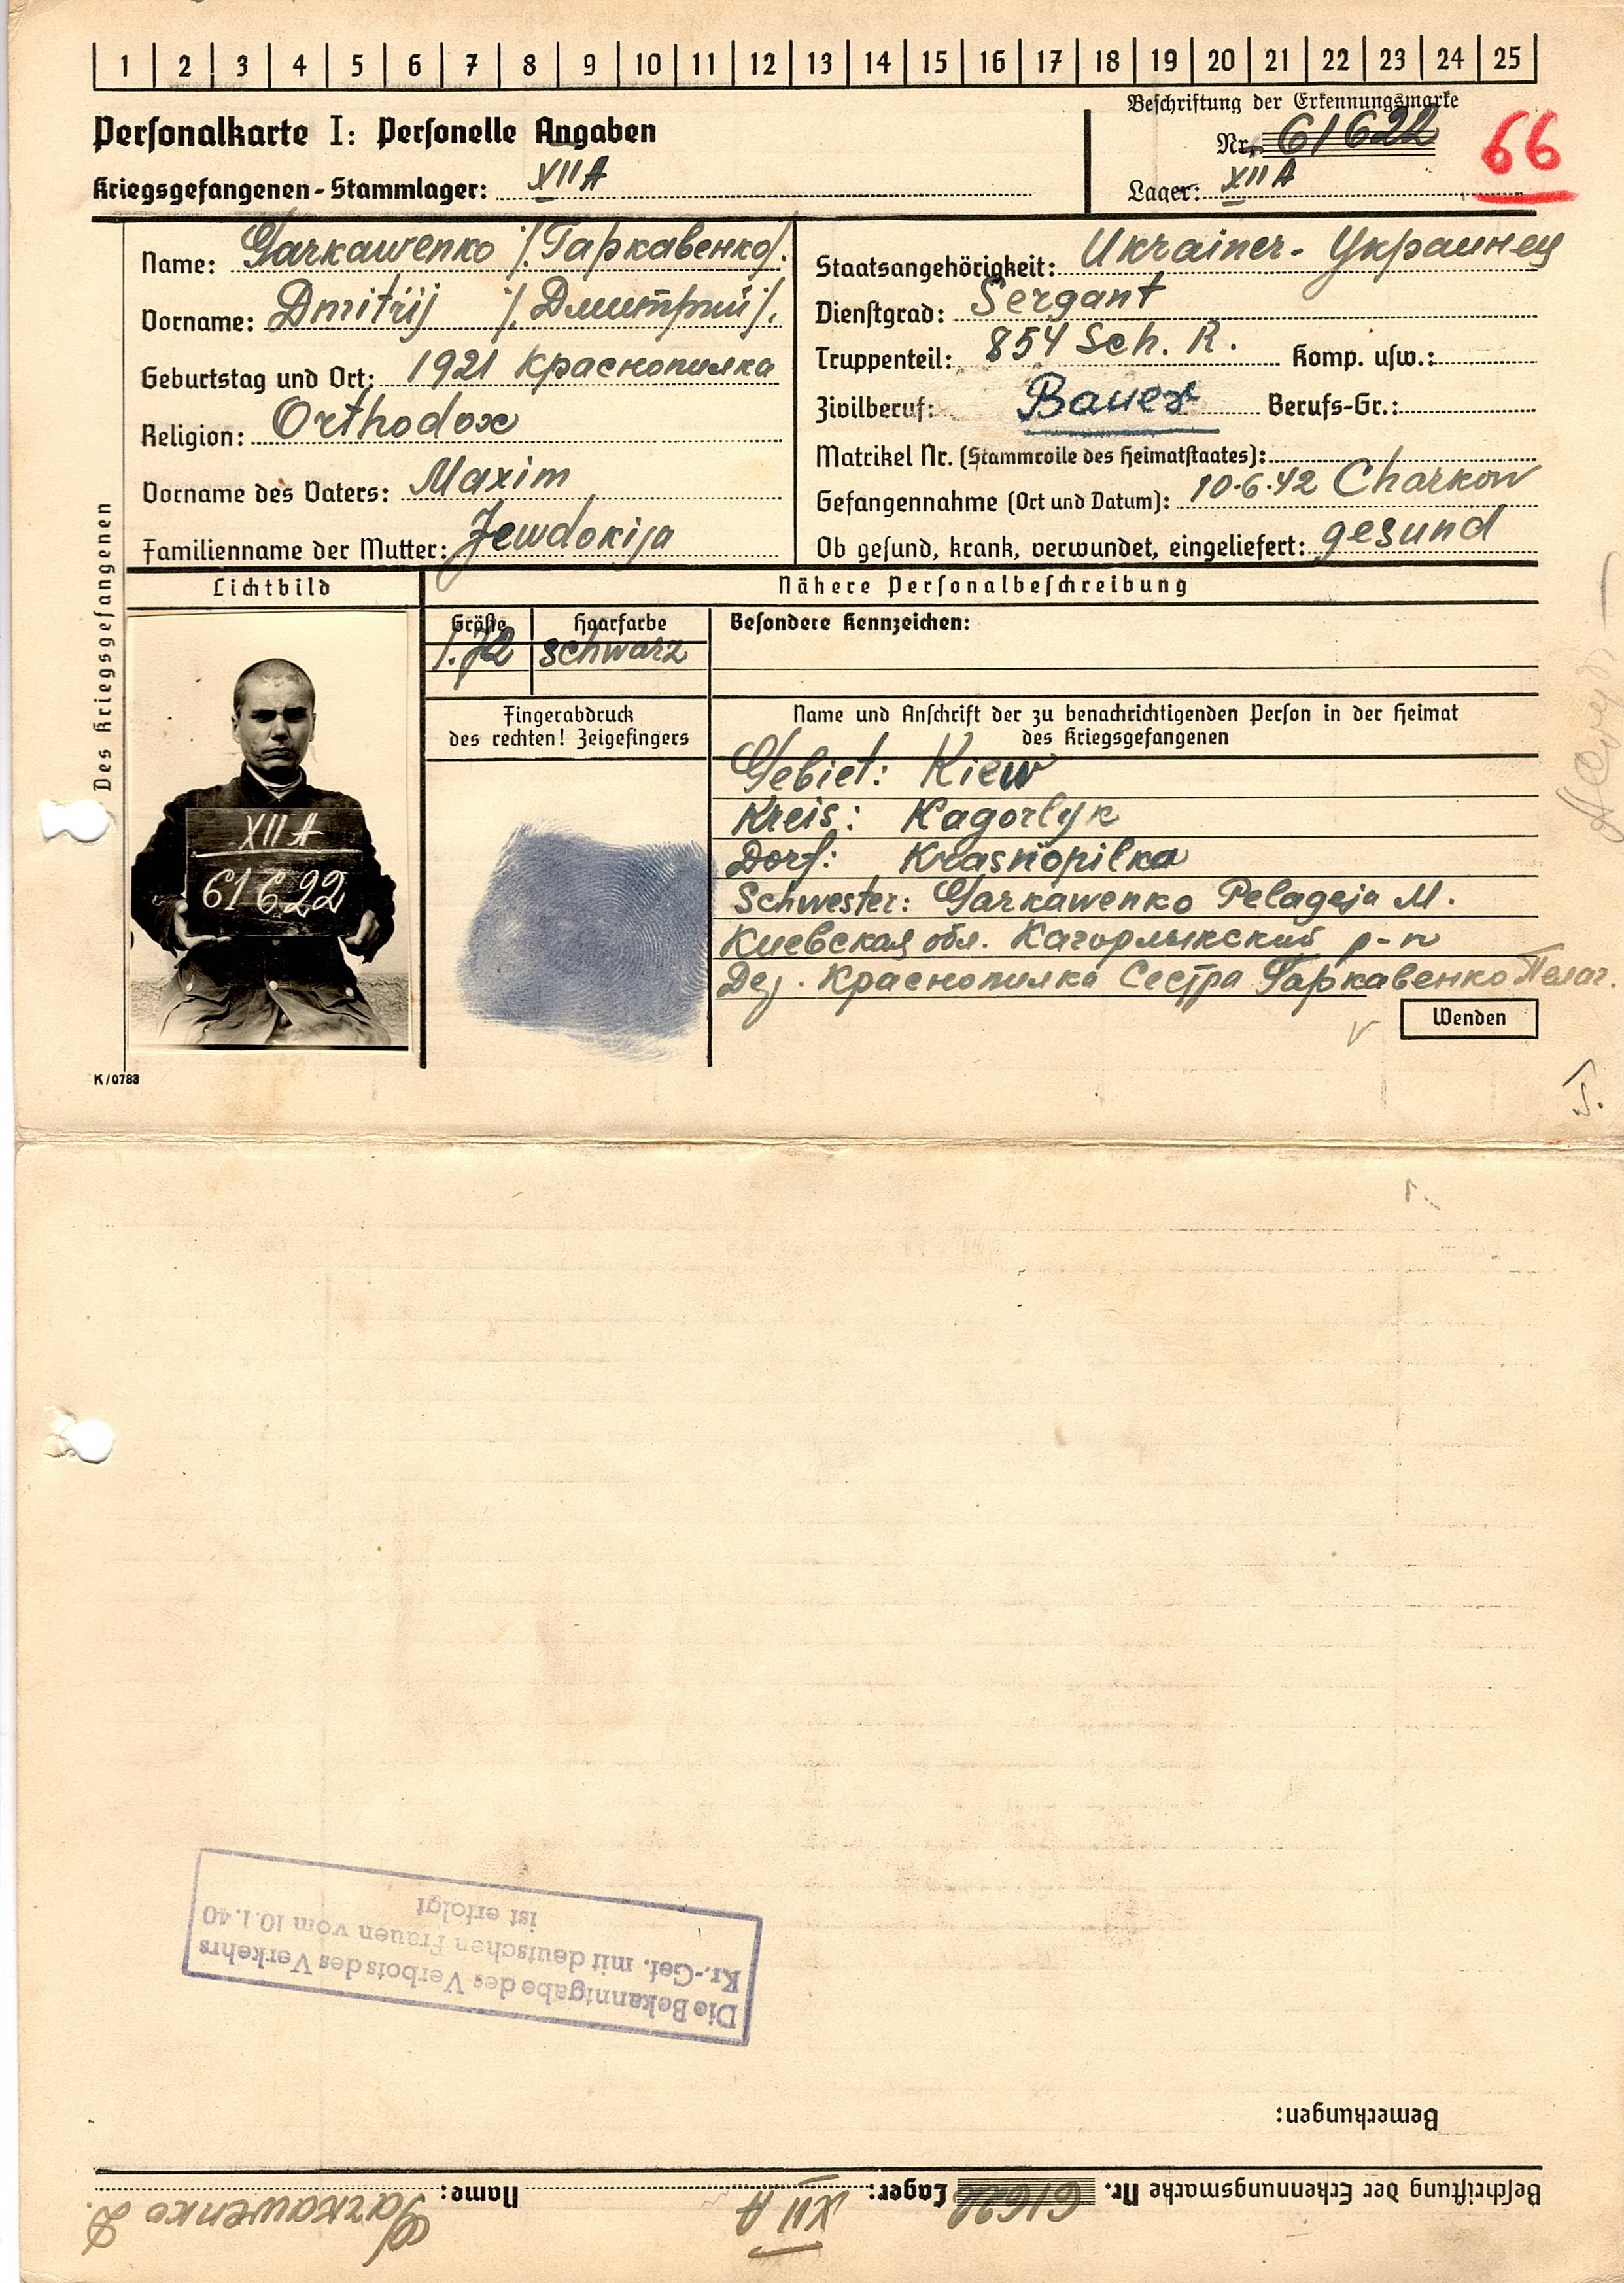 1 2 3 4 5 6 7 8 9 10 11 12 13 14 15 16 17 18 19 20 21 22 23 24 25
Personalkarte I: Personelle Angaben
Kriegsgefangenen-Stammlager: XII A
Beschriftung der Erkennungsmarke
Nr. 61622
Lager: XII A
66
Des Kriegsgefangenen
Name: Garkawenko /.Гаркавенко/.
Vorname: Dmitrij /.Дмитрий/.
Geburtstag und Ort: 1921 Краснопилка
Religion: Orthodox
Vorname des Vaters: Maxim
Familienname der Mutter: Jewdokija
Staatsangehörigkeit: Ukrainer - Украинец
Dienstgrad: Sergant
Truppenteil: 854 Sch. R. Komp. usw.:
Zivilberuf: Bauer Berufs-Gr.:
Matrikel Nr. (Stammrolle des Heimatstaates):
Gefangennahme (Ort und Datum): 10.6.42 Charkow
Ob gesund, krank, verwundet, eingeliefert: gesund
Lichtbild
Nähere Personalbeschreibung
Größe Haarfarbe Besondere Kennzeichen:
1.72 schwarz
XII A
61622
Fingerabdruck
des rechten! Zeigefingers
Name und Anschrift der zu benachrichtigenden Person in der Heimat
des Kriegsgefangenen
Gebiet: Kiew
Kreis: Kagorlyk
Dorf: Krasnopilka
Schwester: Garkawenko Pelageja M.
Киевская обл. Кагорлыкский р-н
Дер. Краснопилка Сестра Гаркавенко Пелаг.
Wenden
K/0783
Die Bekanntgabe des Verbots des Verkehrs
Kr.-Gef. mit deutschen Frauen vom 10.1.40
ist erfolgt
Bemerkungen:
Beschriftung der Erkennungsmarke Nr. 61622 Lager: XII A Name: Garkawenko D.